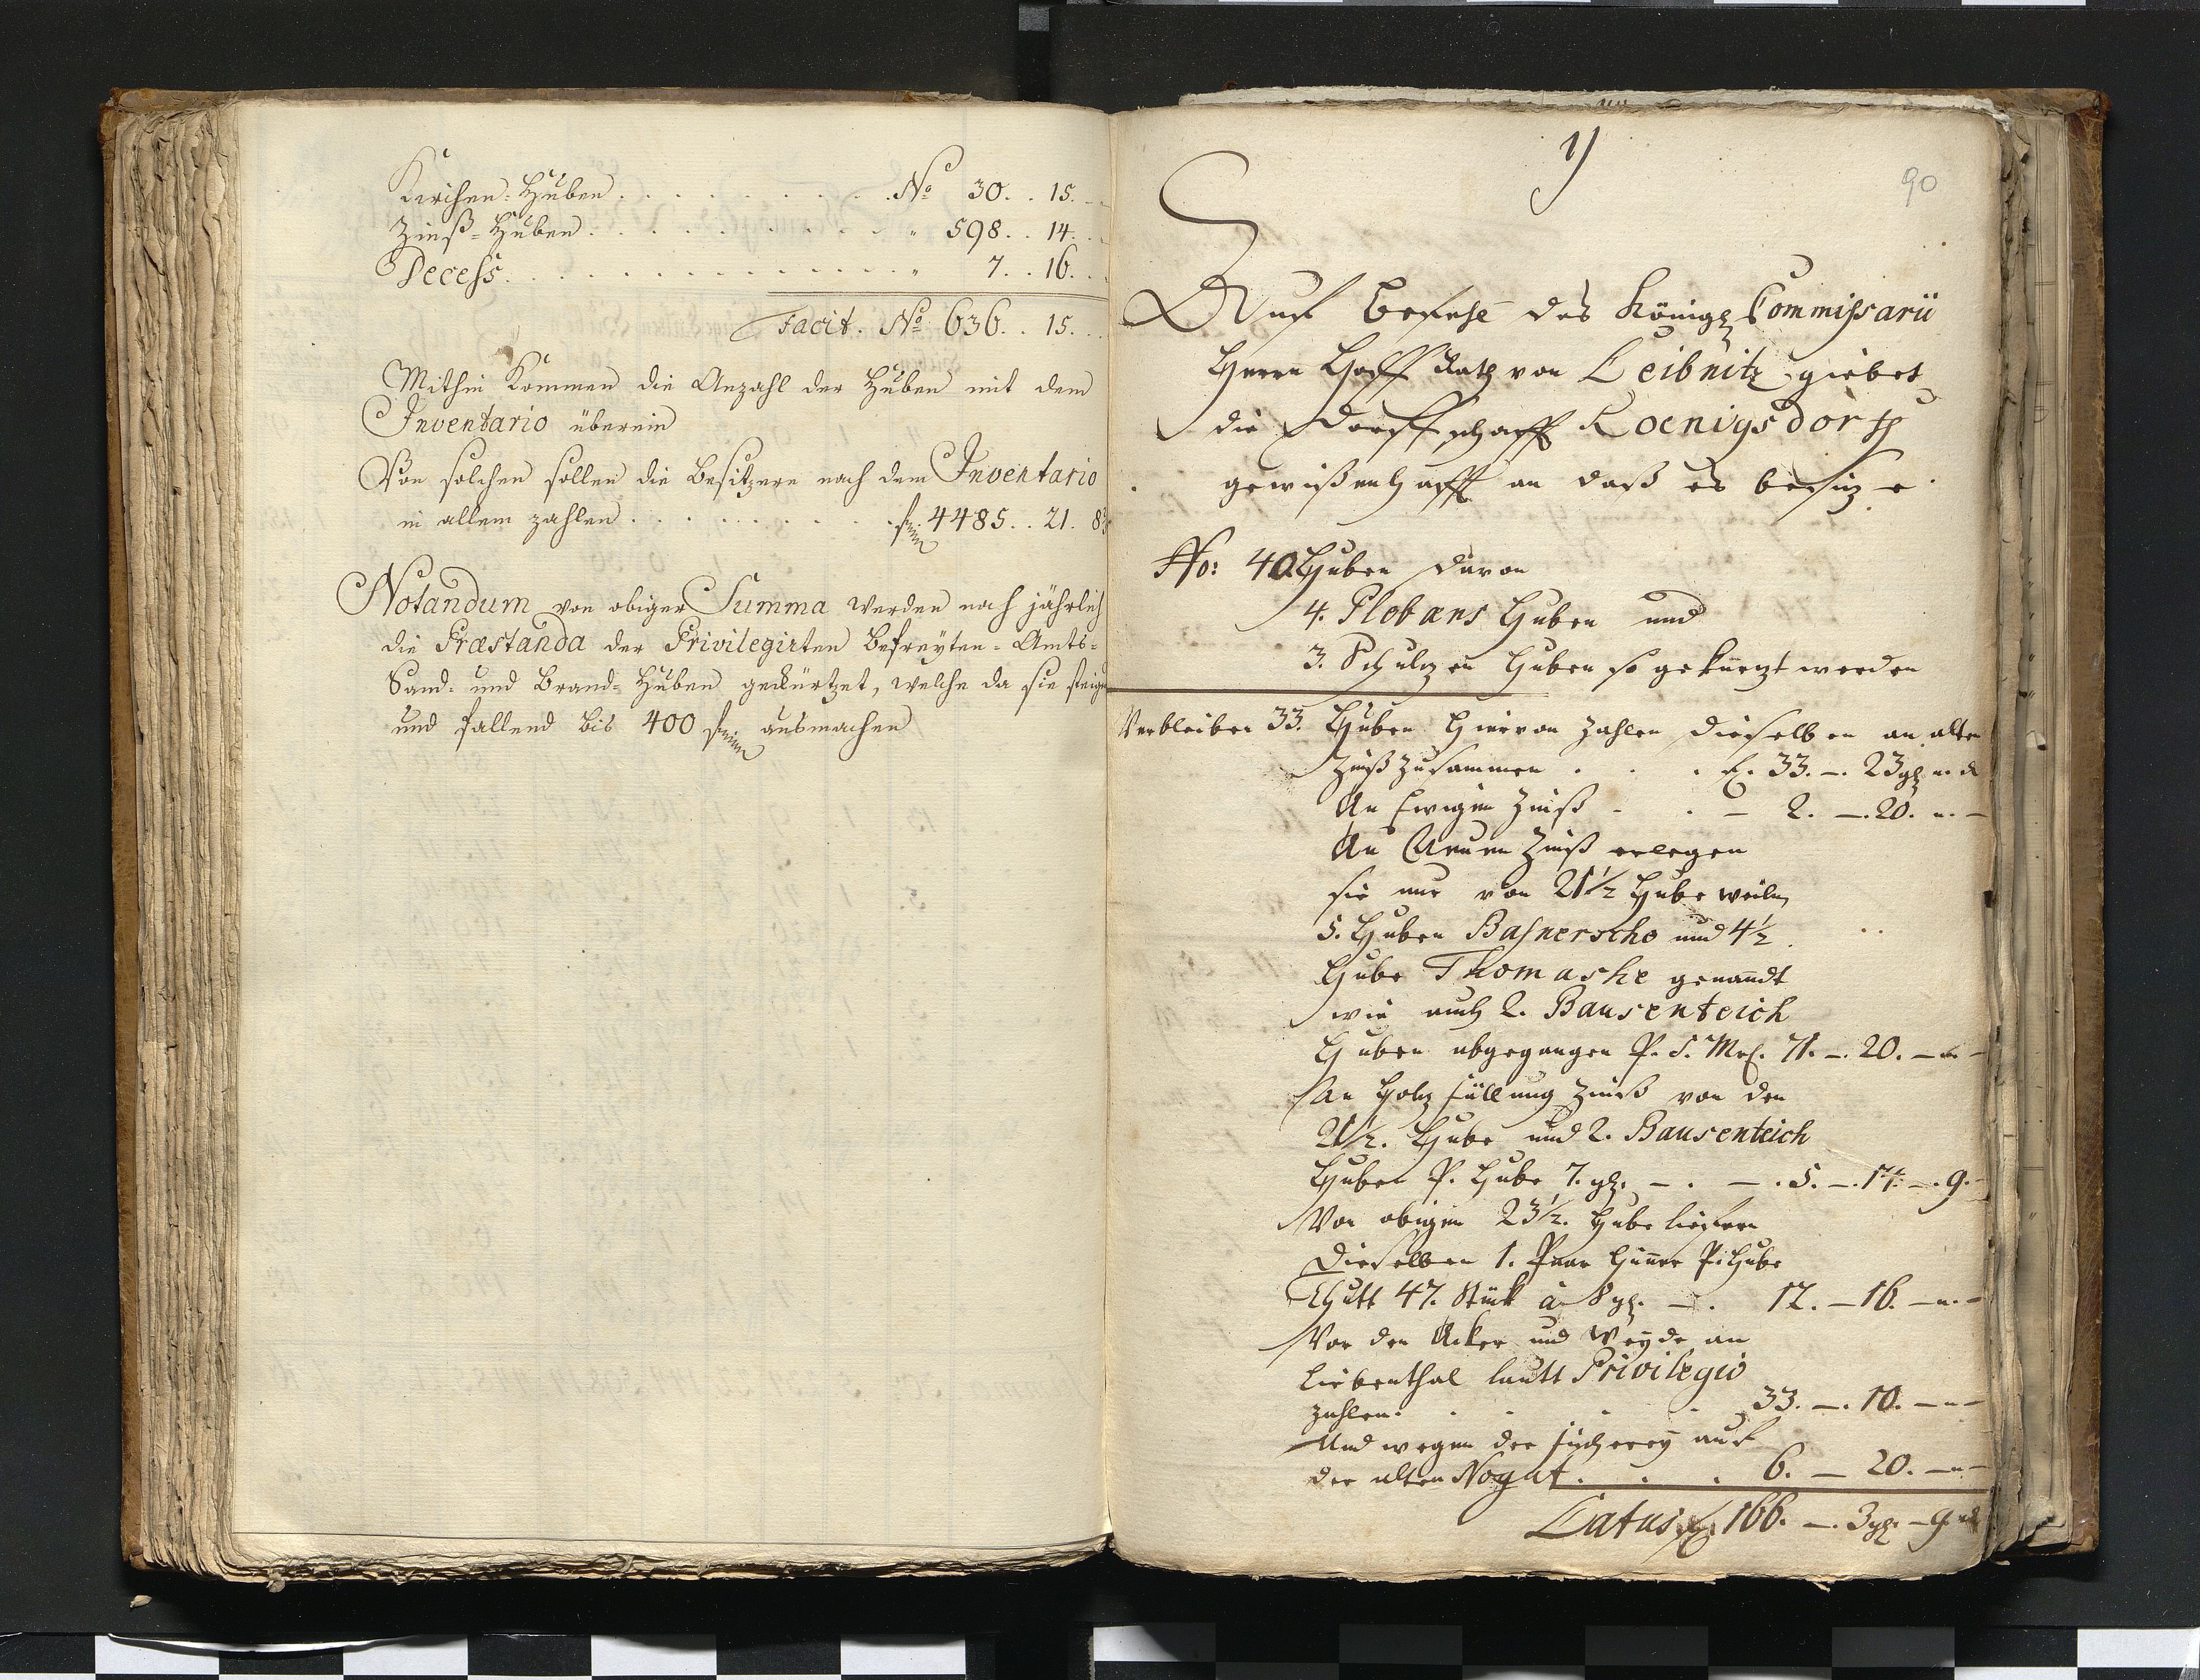 Kirchen-Huben . . . . . . . . . No 30. . 15. -
Zinß-Huben . . . . . . . . . " 598. . 14. .
Decess . . . . . . . . . . . " 7. . 16. .
Facit. No 636. . 15. .
Mithin kommen die Anzahl der Huben mit dem
Inventario überein
Von solchen sollen die Besitzere nach dem Inventario
in allem zahlen . . . . . . . . . 4485. . 21. 8
Notandum von obiger Summa werden noch jährlich
die Præstanda der Privilegirten Befreyten-Amts-
Sand- und Brand-Huben gekürtzet, welche da sie steigen
und fallend bis 400 ausmachen
1)
90
Auf Befehl des Königl Commissarii
Herrn Hoff Rath von Leibnitz giebet
die Dorffschafft Koenigsdorff
gewißenhafft an daß es besitze
No: 40. Huben davon
4. Plebans Huben und
3. Schulzen Huben so gekürzt werden
Verbleiben 33. Huben hiervon zahlen dieselben an alten
Zinß zusammen . . . 33. -. 23 gl
An Ewigen Zinß - . - 2. -. 20. -
An Neuen Zinß erlegen
sie nur von 21½ Hube weilen
5. Huben Basnersche und 4½
Hube Thomaske genandt
wie auch 2. Bausenteich
Huben abgegangen P. 5. Mrk. 71. -. 20. -
An Holz füllung Zinß von den
21½. Hube und 2. Bausenteich
Huben P. Hube 7. gl. -. -. 5. -. 14. -. 9. -
Von obigen 23½. Hube liefern
Dieselben 1. Paar Hüner P. Hube
thutt 47. Stück à 8 gl. -. 12. - 16. -
Vor den Acker und Weyde an
Liebenthal lautt Privilegio
zahlen . . . . . 33. -. 10. -
Und wegen der fischerey auf
der alten Nogat . . . 6. - 20. -
Latus 166. -. 3 gl. - 9